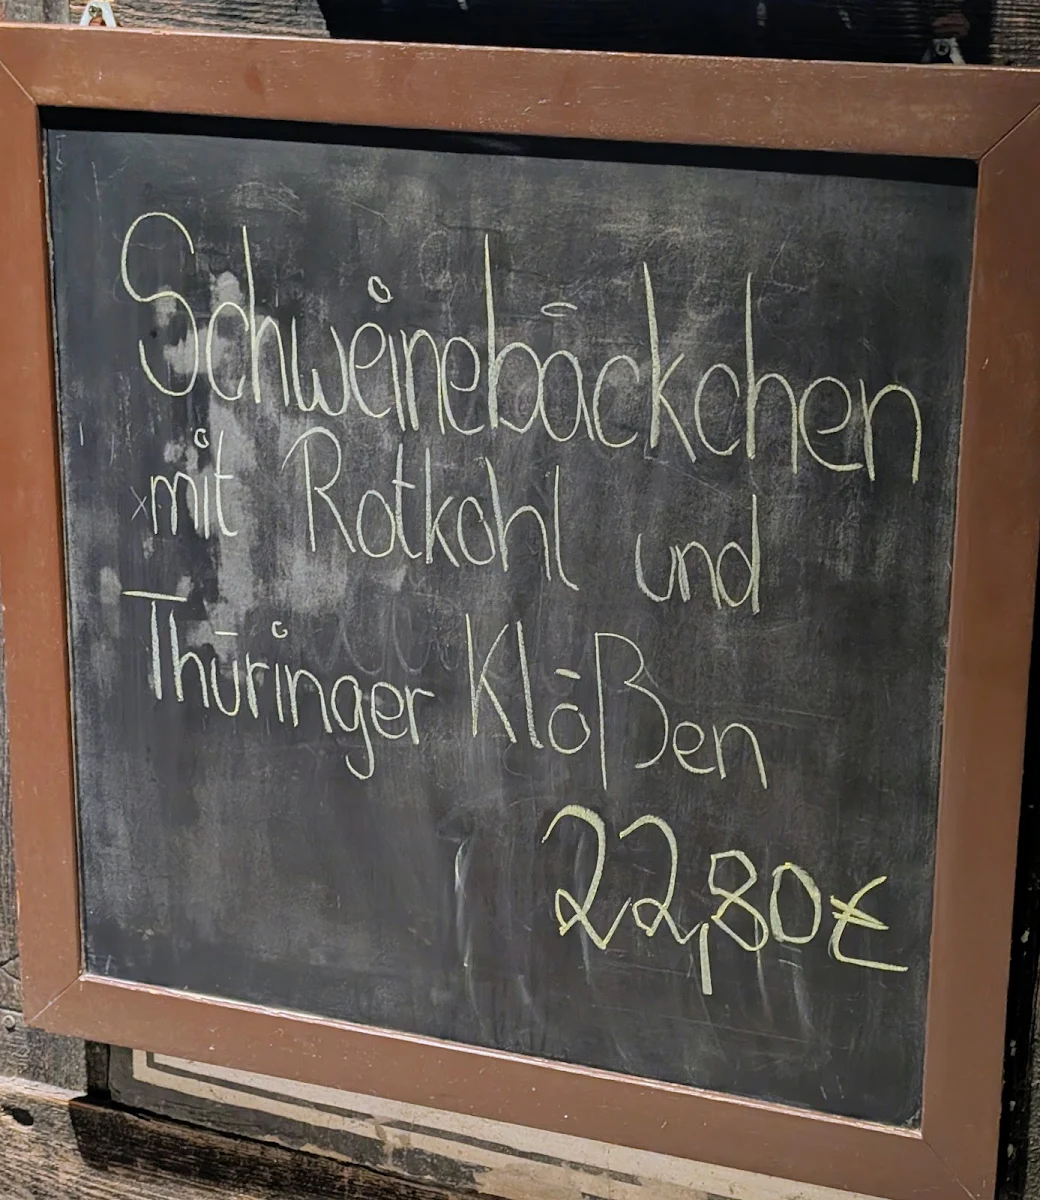 Schweinebäckchen
mit Rotkohl und
Thüringer Klößen
22,80€